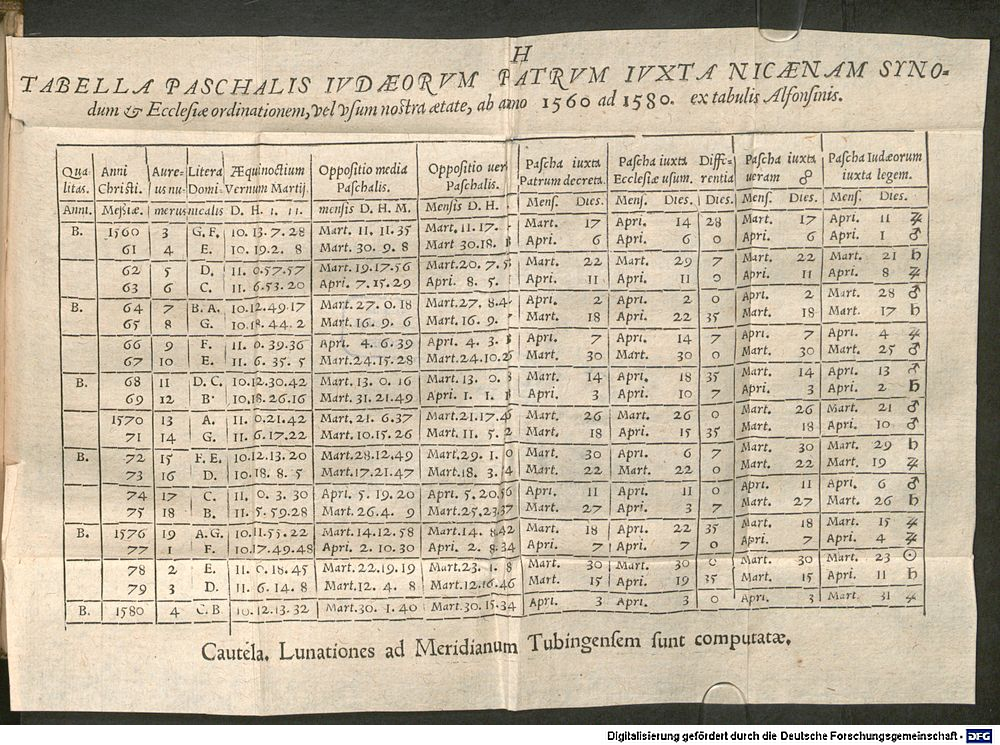 H
TABELLA PASCHALIS IVDÆORVM PATRVM IVXTA NICÆNAM SYNO-
dum & Ecclesiæ ordinationem, vel vsum nostra ætate, ab anno 1560 ad 1580. ex tabulis Alfonsinis.
Qua Anni Aure- Litera Æquinoctium Oppositio media Oppositio ver Pascha iuxta Pascha iuxta Diffe- Pascha iuxta Pascha Iudæorum
litas. Christi. us nu- Domi- Vernum Martij. Paschalis. Paschalis. Patrum decreta. Ecclesiæ usum. rentia ueram ☍ iuxta legem.
Anni. Messiæ. merus nicalis D. H. 1. 11. mensis D. H. M. Mensis D. H. Mens. Dies. Mens. Dies. Dies. Mens. Dies. Mens. Dies.
B. 1560 3 G. F. 10. 13. 7. 28 Mart. 11. 11. 35 Mart. 11. 17. Mart. 17 Apri. 14 28 Mart. 17 Apri. 11 ♃
61 4 E. 10. 19. 2. 8 Mart. 30. 9. 8 Mart 30.18. Apri. 6 Apri. 6 0 Apri. 6 Apri. 1 ♂
62 5 D. 11. 0.57.57 Mart. 19.17.56 Mart.20. 7. 5 Mart. 22 Mart. 29 7 Mart. 22 Mart. 21 ♄
63 6 C. 11. 6.53.20 Apri. 7.15.29 Apri. 8. 5. Apri. 11 Apri. 11 0 Apri. 11 Apri. 8 ♃
B. 64 7 B. A. 10.12.49.17 Mart.27. 0.18 Mart.27. 8.4 Apri. 2 Apri. 2 0 Apri. 2 Mart. 28 ♂
65 8 G. 10.18.44. 2 Mart.16. 9. 6 Mart.16. 9. Mart. 18 Apri. 22 35 Mart. 18 Mart. 17 ♄
66 9 F. 11. 0.39.36 Apri. 4. 6.39 Apri. 4. 3. Apri. 7 Apri. 14 7 Apri. 7 Apri. 4 ♃
67 10 E. 11. 6.35. 5 Mart.24.15.28 Mart.24.10.25 Mart. 30 Mart. 30 0 Mart. 30 Mart. 25 ♂
B. 68 11 D. C. 10.12.30.42 Mart. 13. 0. 16 Mart. 13. 0. Mart. 14 Apri. 18 35 Mart. 14 Apri. 13 ♂
69 12 B. 10.18.26.16 Mart. 31.21.49 Apri. 1. 1. Apri. 3 Apri. 10 7 Apri. 3 Apri. 2 ♄
1570 13 A. 11. 0.21.42 Mart. 21. 6.37 Mart.21.17.46 Mart. 26 Mart. 26 0 Mart. 26 Mart. 21 ♂
71 14 G. 11. 6.17.22 Mart. 10.15.26 Mart. 11. 5. 2 Mart. 18 Apri. 15 35 Mart. 18 Apri. 10 ♂
B. 72 15 F. E. 10.12.13.20 Mart.28.12.49 Mart.29. 1. 0 Mart. 30 Apri. 6 7 Mart. 30 Mart. 29 ♄
73 16 D. 10.18. 8. 5 Mart.17.21.47 Mart.18. 3. 4 Mart. 22 Mart. 22 0 Mart. 22 Mart. 19 ♃
74 17 C. 11. 0. 3. 30 Apri. 5. 19. 20 Apri. 5.20.56 Apri. 11 Apri. 11 0 Apri. 11 Apri. 6 ♂
75 18 B. 11. 5.59.28 Mart. 26.4. 9 Mart.25.23.37 Mart. 27 Apri. 3 7 Mart. 27 Mart. 26 ♄
B. 1576 19 A.G. 10.11.55.22 Mart.14.12.58 Mart.14. 8.42 Mart. 18 Apri. 22 35 Mart. 18 Mart. 15 ♃
77 1 F. 10.17.49.48 Apri. 2. 10.30 Apri. 2. 8.34 Apri. 7 Apri. 7 0 Apri. 7 Apri. 4 ♃
78 2 E. 11. 0.18.45 Mart.22.19.19 Mart.23. 1. 8 Mart. 30 Mart. 30 0 Mart. 30 Mart. 23 ☉
79 3 D. 11. 6.14. 8 Mart.12. 4. 8 Mart.12.16.46 Mart. 15 Apri. 19 35 Mart. 15 Apri. 11 ♄
B. 1580 4 C. B 10. 12.13.32 Mart.30. 1.40 Mart.30. 15.34 Apri. 3 Apri. 3 0 Apri. 3 Mart. 31 ♃
Cautela. Lunationes ad Meridianum Tubingensem sunt computatæ.
Digitalisierung gefördert durch die Deutsche Forschungsgemeinschaft - DFG